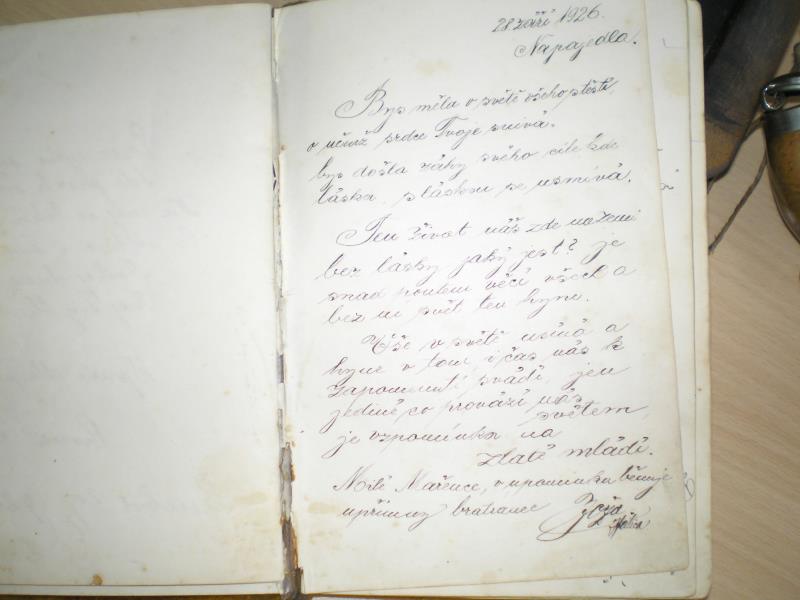 28 září 1926.
Napajedla.
Bys měla v světě všeho štěstí,
o němž srdce Tvoje snívá.
bys došla záhy svého cíle kde
láska s láskou se usmívá.
Ten život náš zde na zemi
bez lásky jaký jest? je
snad pouhou věcí všech a
bez ní svět ten hyne.
Vše v světě usíná a
hyne v tom i čas nás k
zapomenutí svádí, jen
jedině co provází nás
světem,
je vzpomínka na
zlaté mládí.
Milé Mařence, v upomínku věnuje
upřímný bratranec